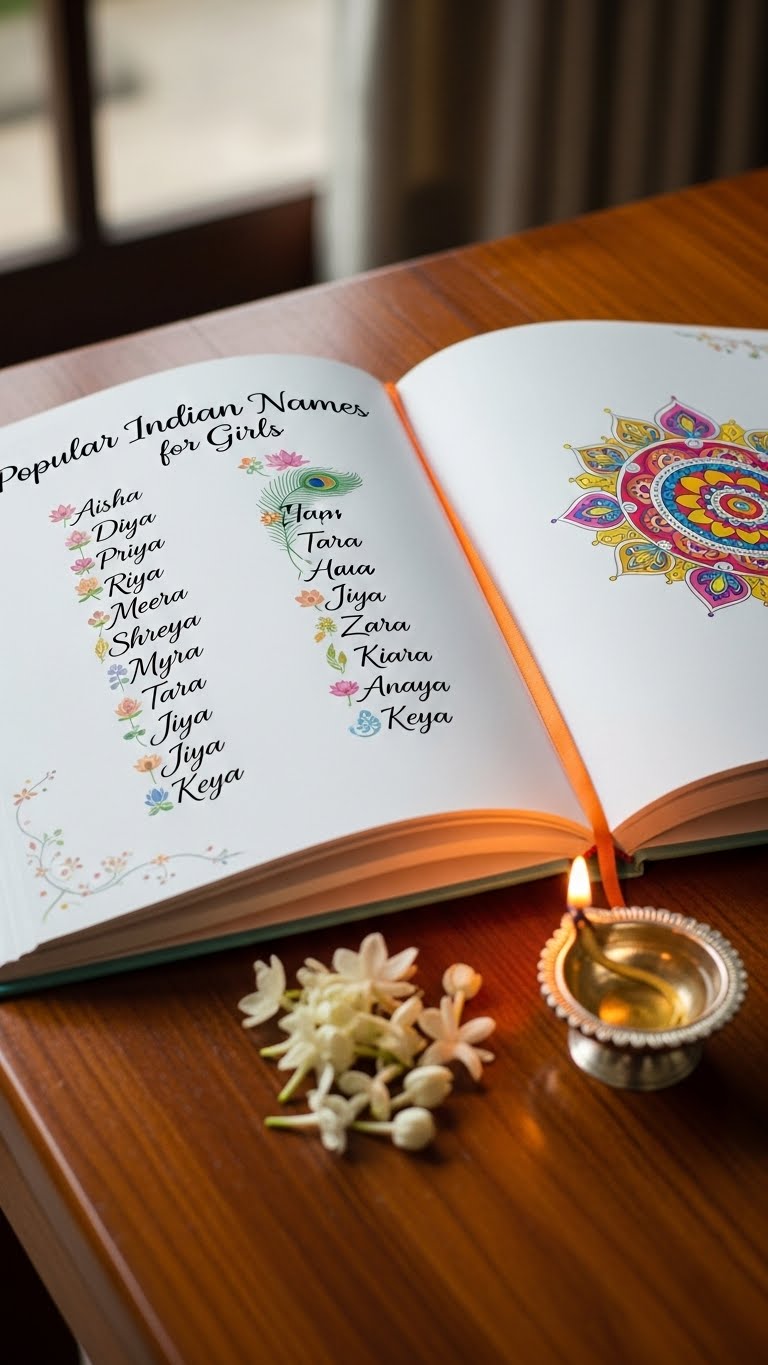 Popular Indian Names
for Girls
Aisha
Diya
Priya
Riya
Meera
Shreya
Myra
Tara
Jiya
Jiya
Keya
Tara
Jiya
Zara
Kiara
Anaya
Keya